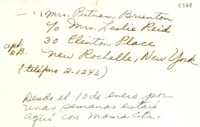 5569
Mrs. Putnam Brinton
c/o Mrs. Leslie Reid
apt. 30 Clinton Place
2B. New Rochelle, New York
(teléfono 2-1243)
Desde el 10 de enero por
unas semanas estaré
aquí con Mamacita.